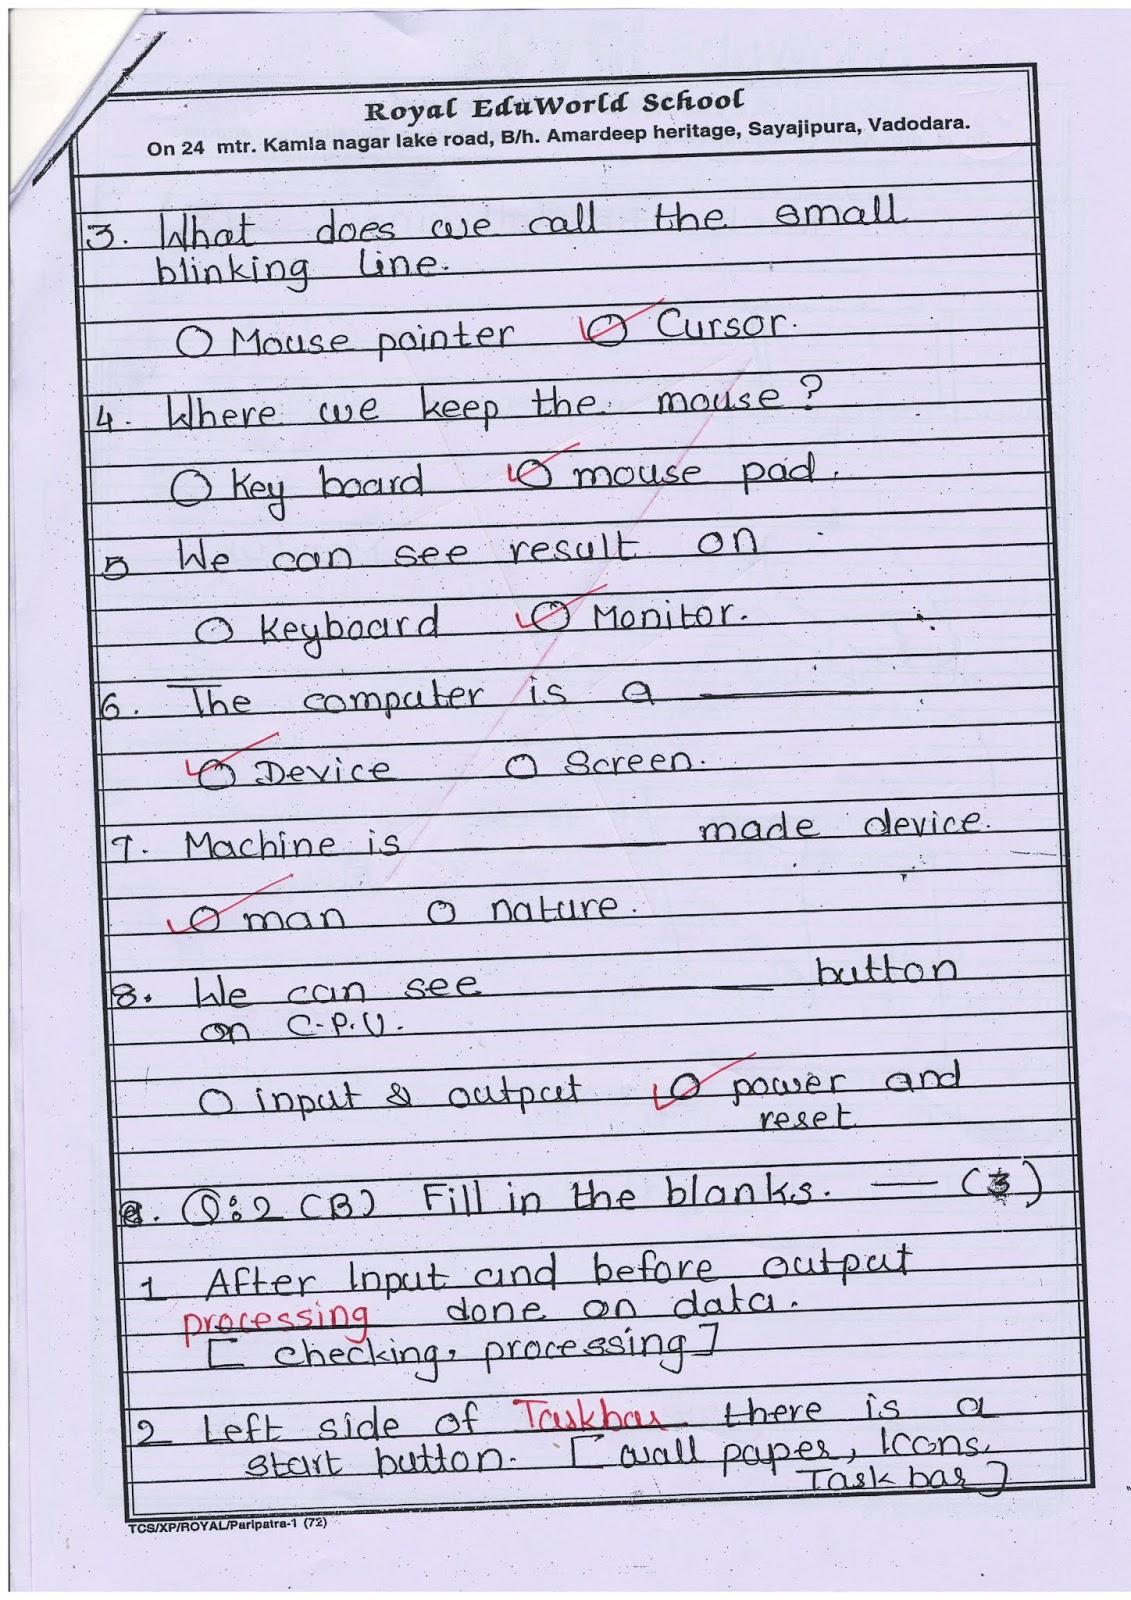 Royal EduWorld School
On 24 mtr. Kamla nagar lake road, B/h. Amardeep heritage, Sayajipura, Vadodara.
3. What does we call the small
blinking line.
Mouse pointer Cursor.
4. Where we keep the mouse?
Key board mouse pad.
5 We can see result on
Keyboard Monitor.
6. The computer is a ____
Device Screen.
7. Machine is ____ made device.
man nature.
8. We can see ____ button
on C.P.U.
input & output power and
reset
Q:2 (B) Fill in the blanks. — (3)
1 After Input and before output
processing done on data.
[ checking, processing]
2 Left side of Taskbar there is a
start button. [ wall paper, Icons,
Task bar]
TCS/XP/ROYAL/Paripatra-1 (72)